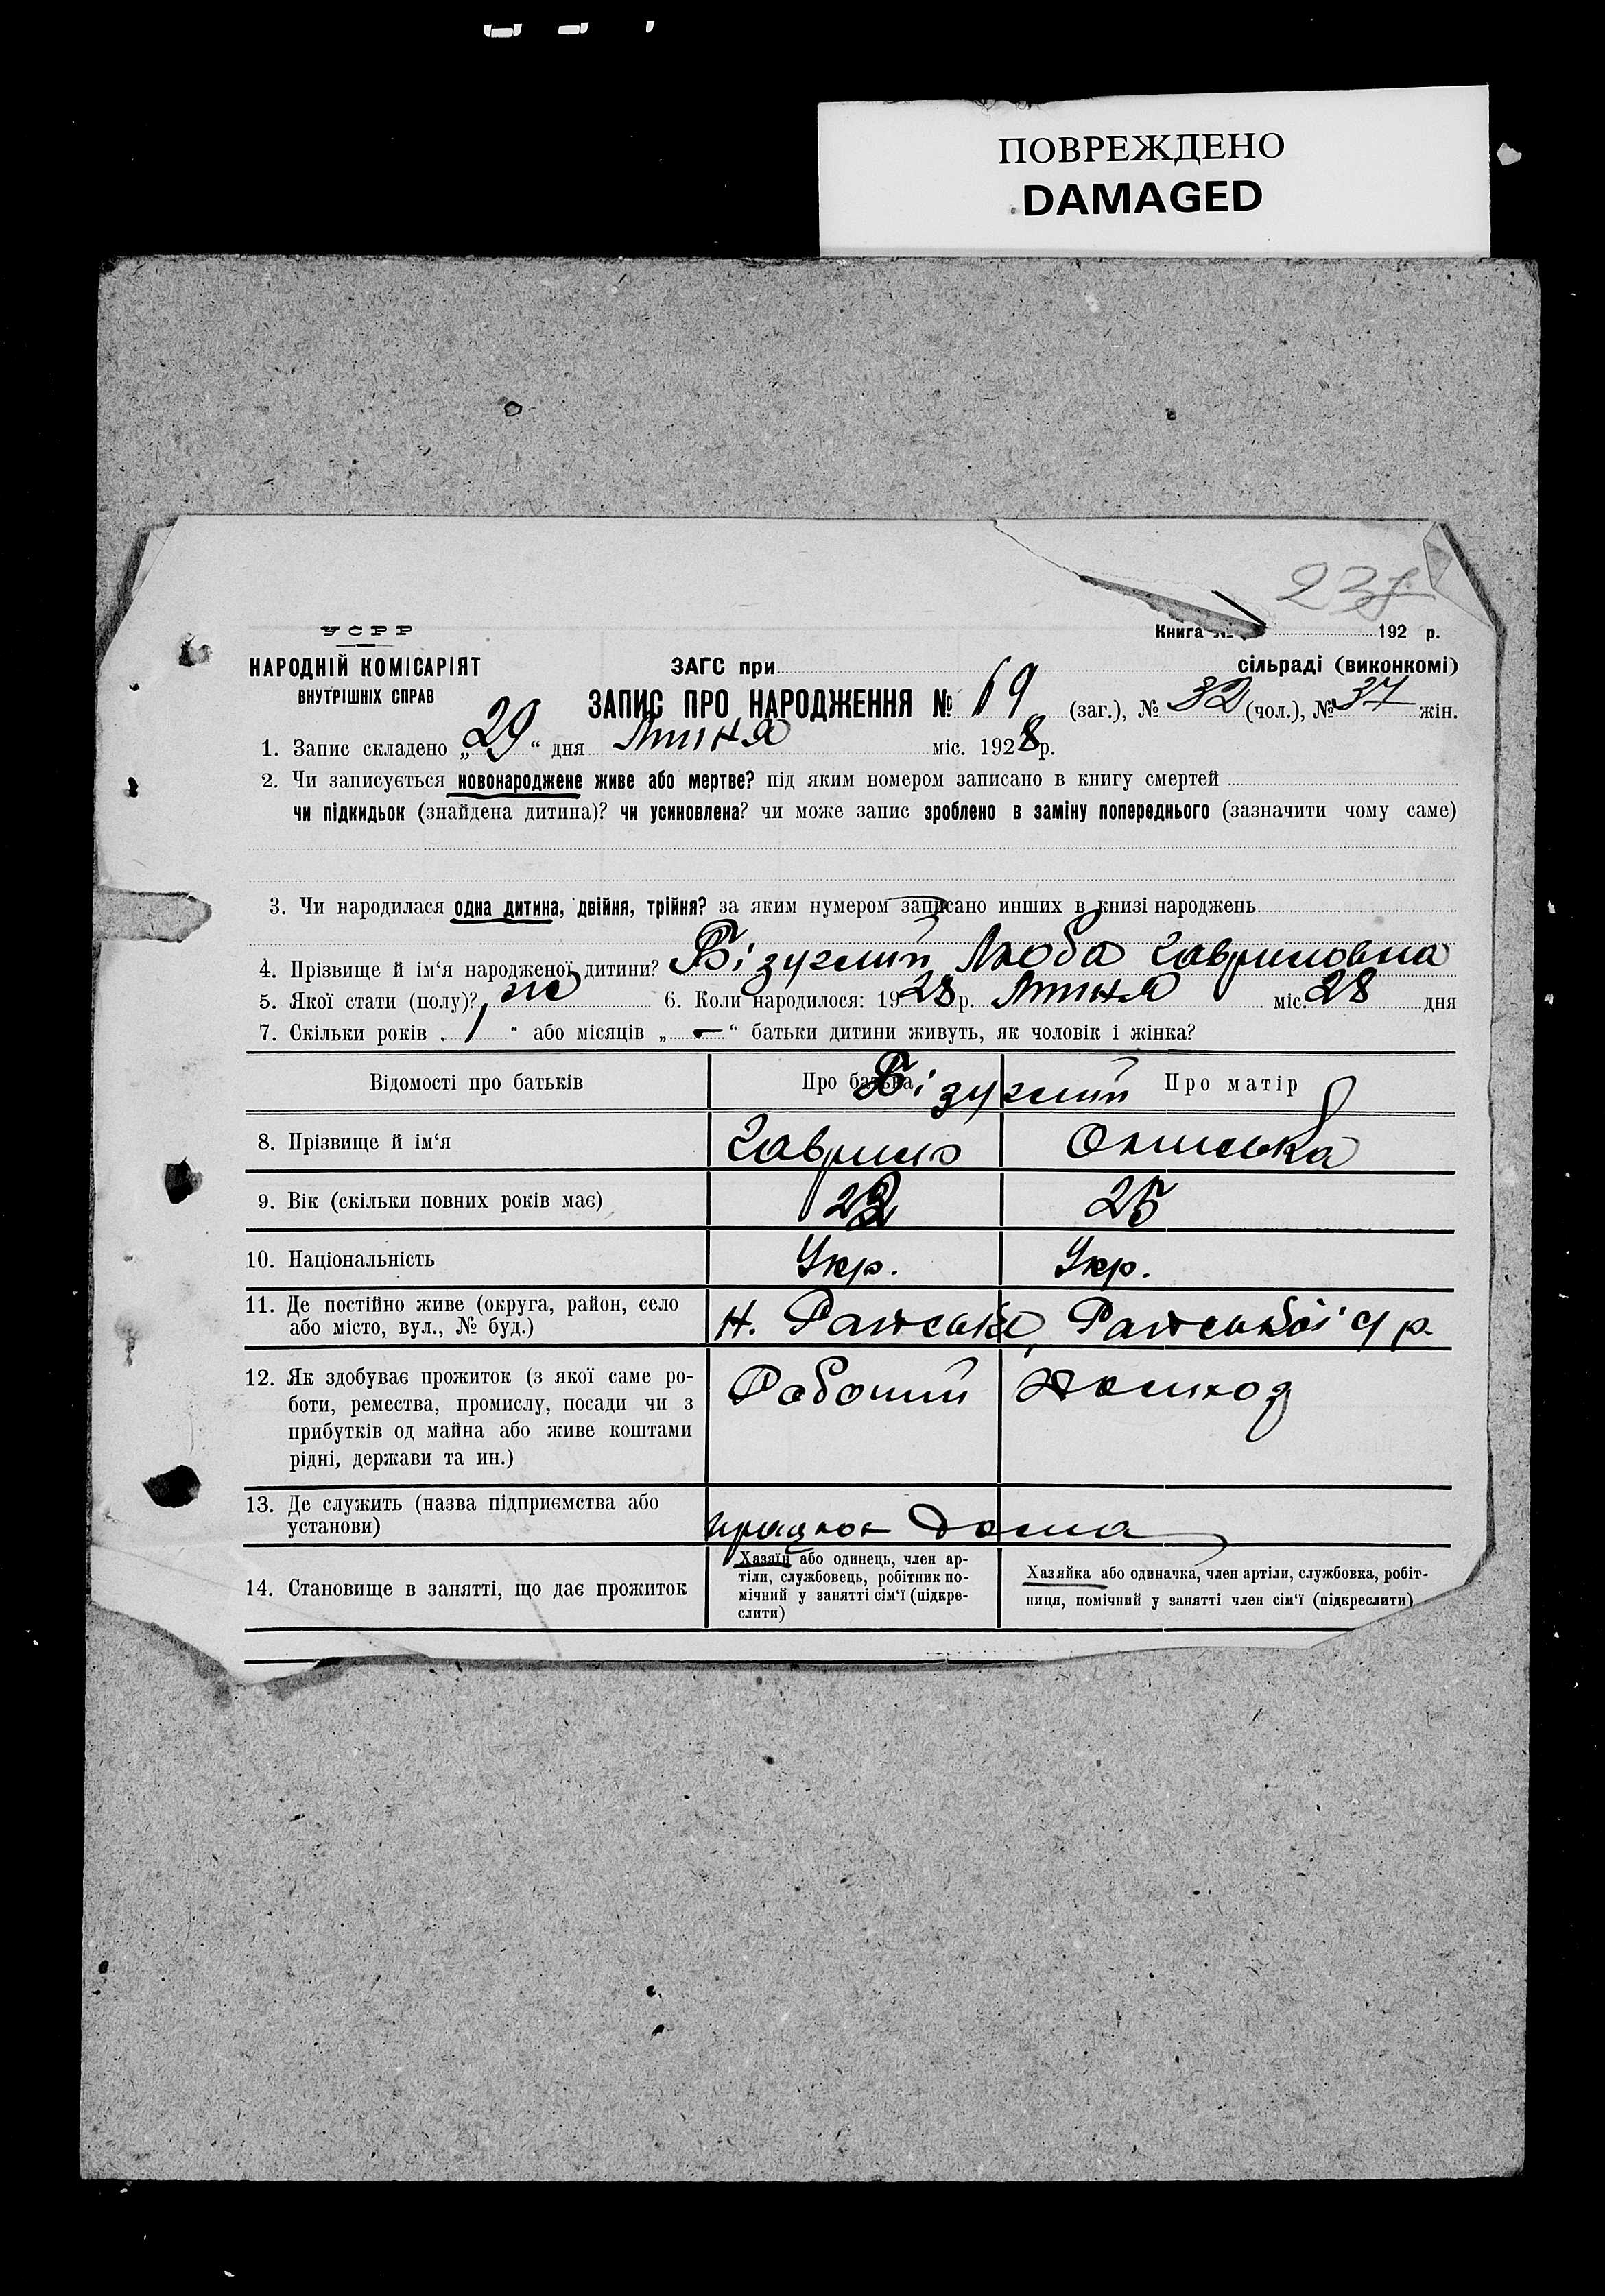 ПОВРЕЖДЕНО
DAMAGED
УСРР
НАРОДНІЙ КОМІСАРІЯТ
ВНУТРІШНІХ СПРАВ
Книга № 192 р.
ЗАГС при сільраді (виконкомі)
ЗАПИС ПРО НАРОДЖЕННЯ № 69 (заг.), № 32 (чол.), № 37 жін.
1. Запис складено „29“ дня Липня міс. 1928 р.
2. Чи записується новонароджене живе або мертве? під яким номером записано в книгу смертей
чи підкидьок (знайдена дитина)? чи усиновлена? чи може запис зроблено в заміну попереднього (зазначити чому саме)
3. Чи народилася одна дитина, двійня, трійня? за яким нумером записано инших в книзі народжень
4. Прізвище й ім‘я народженої дитини? Бізуглий Люба Гавриловна
5. Якої стати (полу)? ж 6. Коли народилося: 1928 р. Липня міс. 28 дня
7. Скільки років „1“ або місяців „—“ батьки дитини живуть, як чоловік і жінка?
Відомості про батьків Про батька Про матір
Бізуглий
8. Прізвище й ім‘я Гаврило
9. Вік (скільки повних років має) 25
10. Національність Укр. Укр.
11. Де постійно живе (округа, район, село
або місто, вул., № буд.) Н.
12. Як здобуває прожиток (з якої саме ро-
боти, ремества, промислу, посади чи з
прибутків од майна або живе коштами
рідні, держави та ин.)
13. Де служить (назва підприємства або
установи) дома
14. Становище в занятті, що дає прожиток
Хазяїн або одинець, член ар-
тіли, службовець, робітник по-
мічний у занятті сім‘ї (підкре-
слити)
Хазяйка або одиначка, член артіли, службовка, робіт-
ниця, помічний у занятті член сім‘ї (підкреслити)